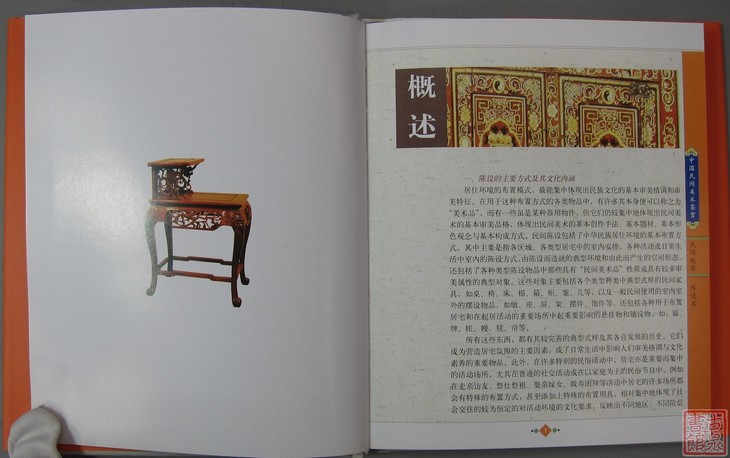 概述
一、陈设的主要方式及其文化内涵
居住环境的布置模式，最能集中体现出民族文化的基本审美情调和审
美特征。在用于这种布置方式的各类物品中，有许多其本身便可以称之为
“美术品”，而有一些虽是某种器用物件，但它们仍较集中地体现出民间美
术的基本审美品格，体现出民间美术的基本创作手法、基本题材、基本形
色观念与基本构成方式。民间陈设包括了中华民族居住环境的基本布置方
式，其中主要是指各区域、各类型居宅中的室内安排，各种活动或日常生
活中室内的陈设方式，由陈设而造就的典型环境和由此而产生的空间形态，
还包括了各种类型陈设物品中那些具有“民间美术品”性质或具有较多审
美属性的典型对象。这些对象主要包括各个类型种类中典型式样的民间家
具，如桌、椅、床、榻、箱、柜、案、几等，以及一般民间使用的室内室
外的摆设物品，如墩、座、屏、架、摆件、饰件等，还包括各种用于布置
居宅和在起居活动的重要场所中起重要影响的悬挂物和铺设物，如：匾、
牌、帐、幔、毯、帘等。
所有这些东西，都有其较完善的典型式样及其各自发展的历史。它们
成为营造居宅氛围的主要因素，成了日常生活中影响人们审美格调与文化
素养的重要物品。此外，在许多特别的民俗活动中，居宅亦是重要而集中
的活动场所，尤其在普通的社交活动或在以家庭为主的民俗节日中，例如
在走亲访友、祭灶祭祖、娶亲嫁女、做寿团拜等活动中居宅的许多场所都
会有特殊的布置方式，甚至添加上特殊的布置用具，相对集中地体现了社
会交往的较为恒定的对活动环境的文化要求，反映出不同地区、不同阶层
1
中国民间美术鉴赏